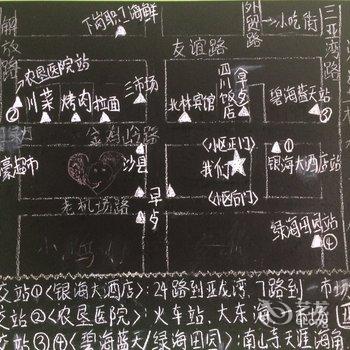 下岗职工海鲜
外贸路
小吃街
三亚湾路
解放路
友谊路
②农垦医院站
三市场
川菜 烤肉 拉面
北林宾馆
四川饭店
早点
碧海蓝天站
③
金鸡岭路
豪超市
沙县
〈小区正门〉
我们
①
银海大酒店站
早点
〈小区后门〉
老机场路
绿海田园站
④
交站①〈银海大酒店〉:24路到亚龙湾,7路到 市场
交站②〈农垦医院〉:火车站、大东海
交站③④〈碧海蓝天/绿海田园〉:南山寺天涯海角